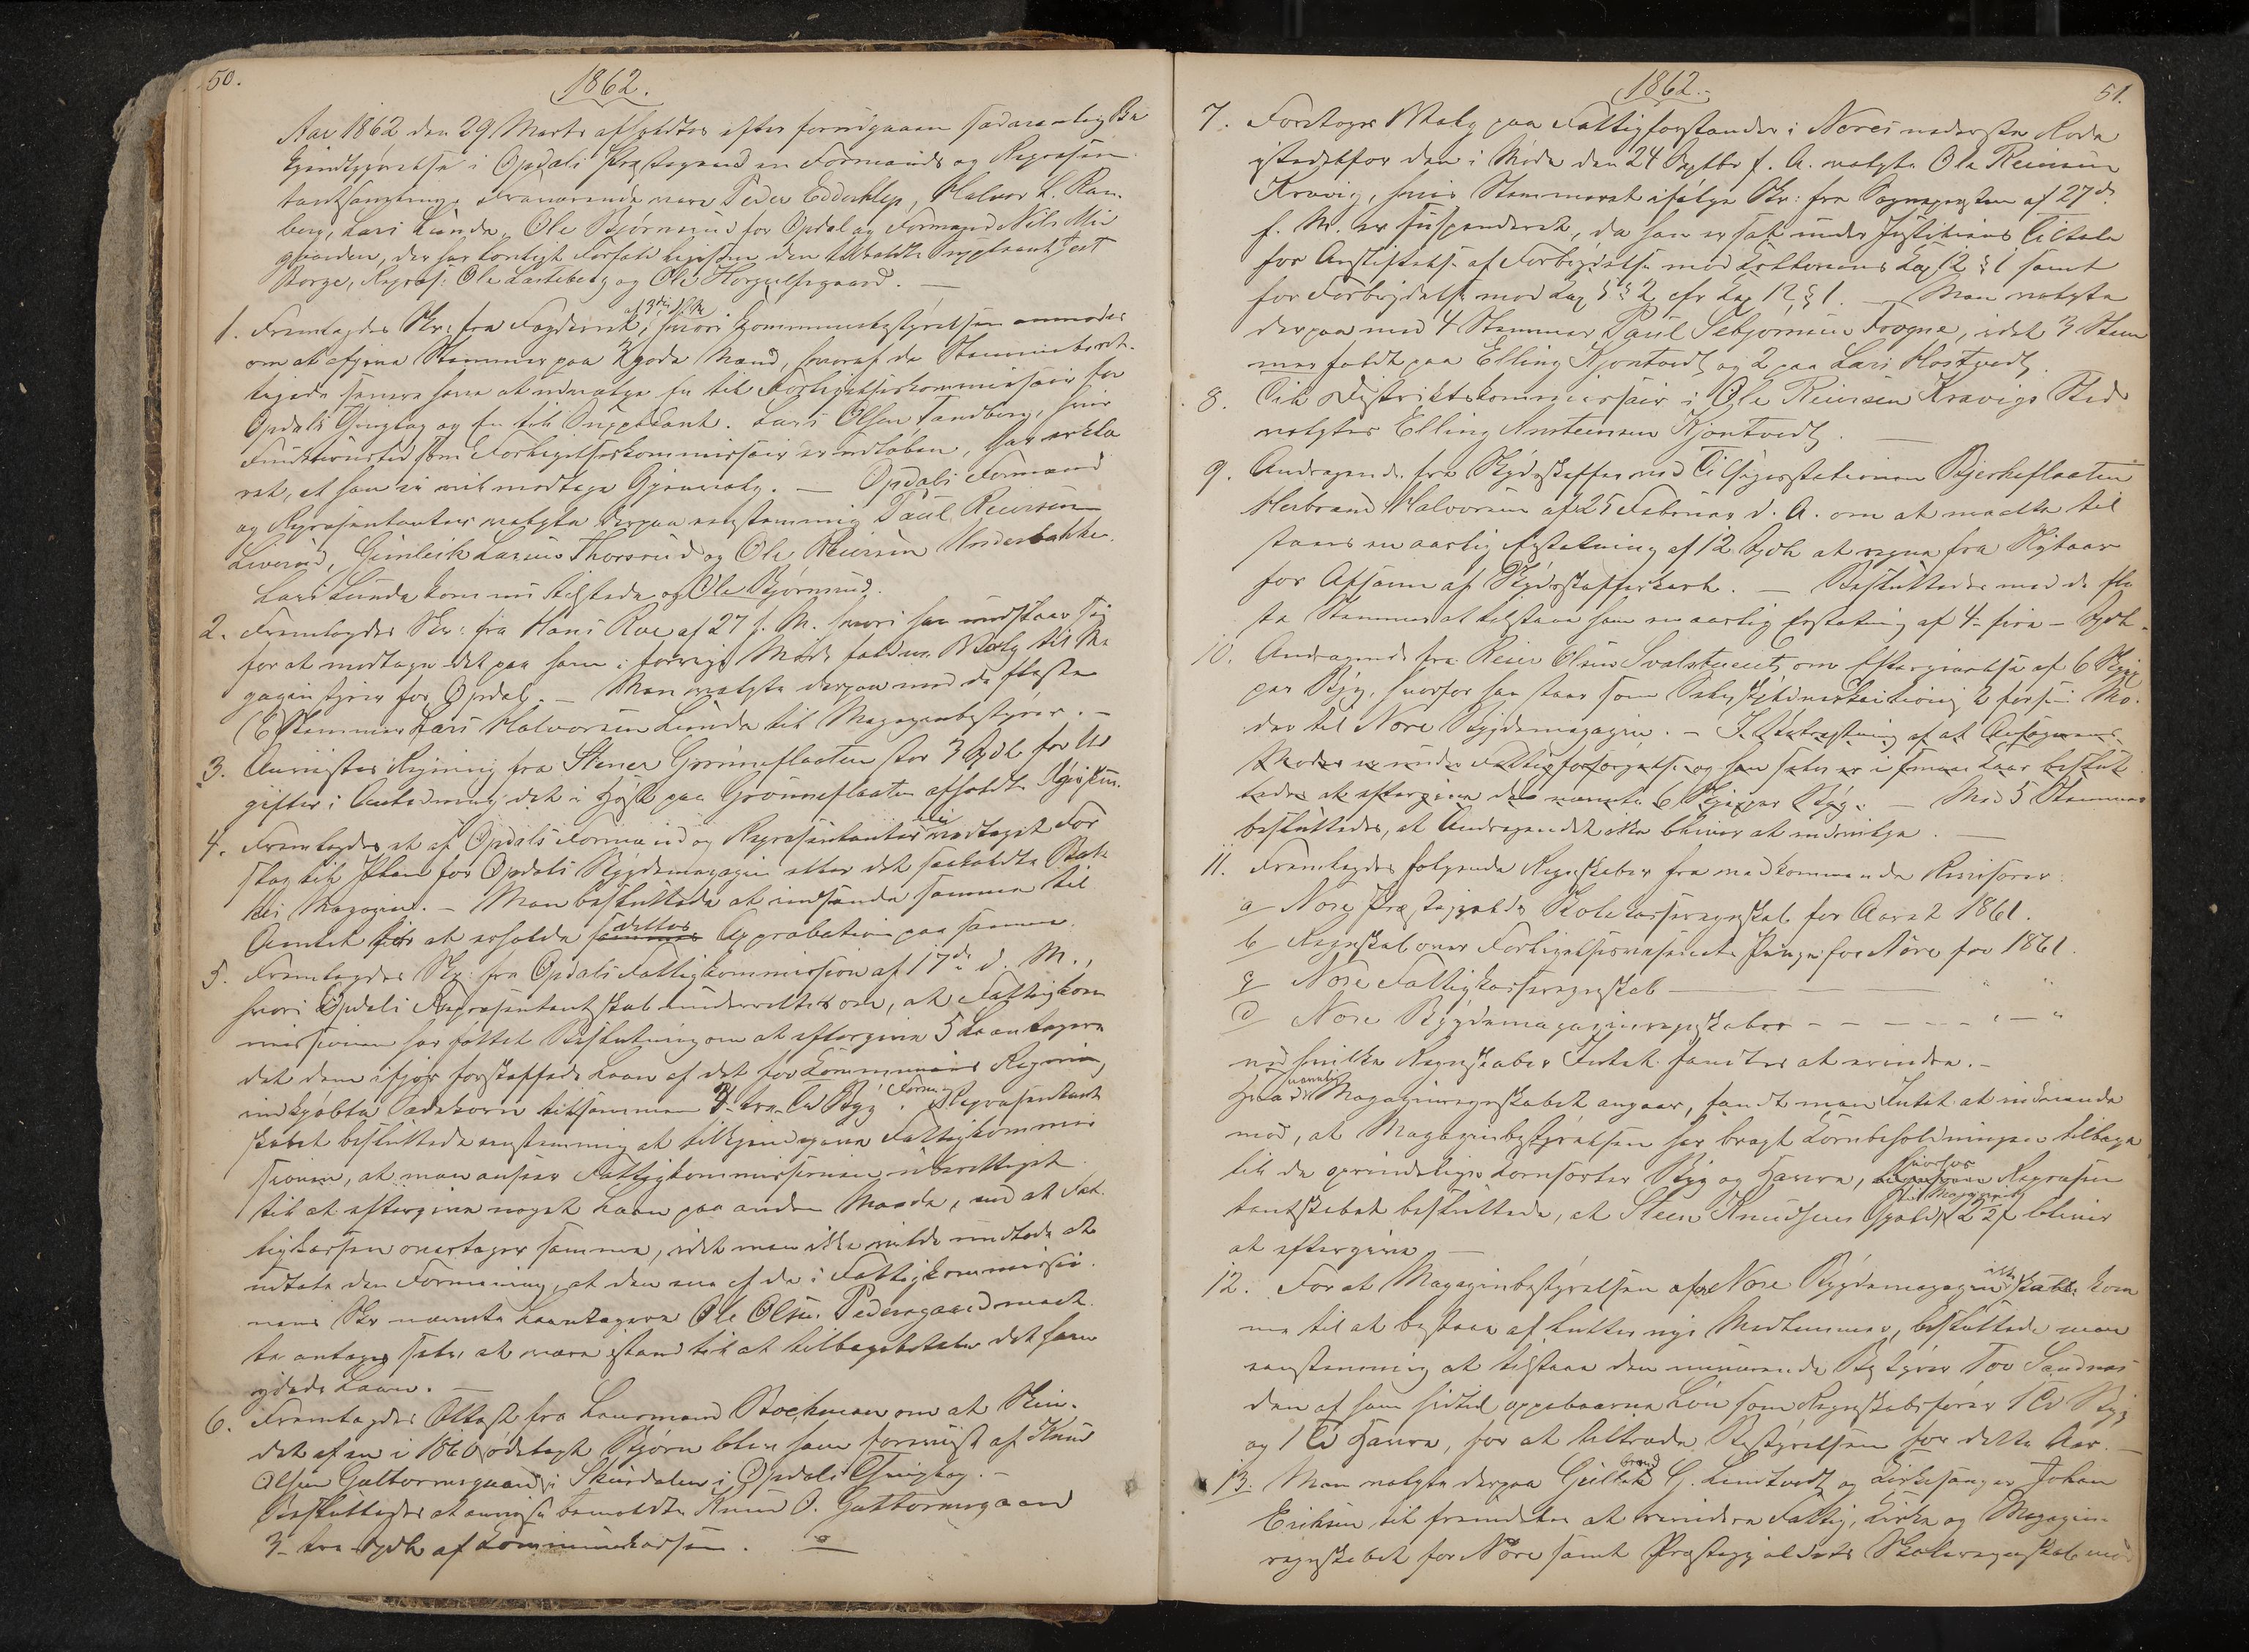 50.
1862.
Aar 1862 den 29 Marts afholdtes efter forudgaaen sædvanlig Be
kjendtgjørelse i Opdals Præstegaard en Formands og Repræsen
tantsamling. Nærværende vare Peder Eddeklep, Halvor L. Ram-
berg, Lars Lunda, Ole Bjørnsrud for Opdal og Formand Nils Mie
gaarden, der har lovligt Forfald ligesom den tilkaldte Suppleant Jost
Borge, Repræs: Ole Lasteberg og Ole Horgulsgaard. —
1. Fremlagdes Skr: fra Fogderiet af 3die d. M., hvori Kommunebestyrelsen anmodes
om at afgive Stemmer paa 3 gode Mænd, hvoraf de Stemmeberet-
tigede senere have at udvælge En til Forligelseskommissair for
Opdals Thinglag og En til Suppleant. Lars Olsen Tandberg, hvis
Funktionstid som Forligelseskommissair er udløben, har erklæ
ret, at han ei vil modtage Gjenvalg. — Opdals Formænd
og Repræsentanter valgte derpaa eenstemmig Paul Reiersen
Liverud, Gunleik Larsen Thorsrud og Ole Reiersen Underbakke.
Lars Lunda kom nu tilstede og Ole Bjørnsrud.
2. Fremlagdes Skr: fra Hans Roe af 27 f. M. hvori han undslaar sig
for at modtage det paa ham i forrige Møde faldne Valg til Ma
gasinstyrer for Opdal. — Man valgte derpaa med de fleste
(6) Stemmer Lars Halvorsen Lunda til Magazinbestyrer. —
3. Anvistes Regning fra Stener Grønneflaaten stor 3 Spdl for Ud
gifter i Anledning det i Høst paa Grønneflaaten afholdte Dyrskue.
4. Fremlagdes et af Opdals Formænd og Repræsentanter nu vedtaget For
slag til Plan for Opdals Bygdemagazin eller det saakaldte Bak
kes Magazin. — Man besluttede at indsende samme til
Amtet for at erholde dettes Approbation paa samme.
5. Fremlagdes Skr: fra Opdals Fattigkommission af 17de d. M.,
hvori Opdals Repræsentantskab underrettes om, at Fattigkom
missionen har fattet Beslutning om at eftergive 5 Laantagere
det dem ifjor forskaffede Laan af det for Kommunens Regning
indkjøbte Sædekorn tilsammen 3 - tre Td Byg. Form: og Repræsentant
skabet besluttede eenstemmig at tilkjendegive Fattigkommis
sionen, at man anseer Fattigkommissionen uberettiget
til at eftergive noget Laan paa anden Maade, end at Fat
tigkassen overtager samme, idet man ikke vilde undlade at
udtale den Formening, at den ene af de i Fattigkommissio-
nens Skr nævnte Laantagere Ole Olsen Pedersgaard maat
te antages selv at være istand til at tilbagebetale det ham
ydede Laan. —
6. Fremlagdes Attest fra Lensmand Bockmann om at Skin-
det af en i 1860 ødelagt Bjørn blev ham forevist af Knud
Olsen Guttormsgaard i Skurdalen i Opdals Thinglag. —
Besluttedes at anvise bemeldte Knud O. Guttormsgaard
3 - tre - Spdl af Kommunekassen. —
1862.
51.
7. Foretoges Valg paa Fattigforstander i Nores nederste Rode
istedetfor den i Møde den 24 Septbr f. A. valgte Ole Reiersen
Kravig, hvis Stemmeret ifølge Skr: fra Sognepresten af 27de
f. M. er suspenderet, da han er sat under Justitiens Tiltale
for Anstiftelse af Forbrydelse mod Lovens Kap 12 § 1 samt
for Forbrydelse mod Kap 5 § 2 cfr Kap 12 § 1. — Man valgte
derpaa med 4 Stemmer Paul Sebjørnsen Frogne, idet 3 Stem
mer faldt paa Elling Kjøntvedt og 2 paa Lars Hostvedt.
8. Til Distriktskommissair i Ole Reiersen Kravigs Sted
valgtes Elling Anstensen Kjøntvedt. —
9. Andragende fra Skydsskaffer ved Tilsigelsstationen Bjerkeflaaten
Herbrand Halvorsen af 25 Februar d. A. om at maatte til
staaes en aarlig Erstatning af 12 Spdl at regne fra Nytaar
for Afsavn af Skydsskafferskat. — Besluttedes med de fle
ste Stemmer at tilstaae ham en aarlig Erstatning af 4 - fire - Spdl.
10. Andragende fra Reier Olsen Svalstuent om Eftergivelse af 6 Skjæp
per Byg, hvorfor han staar som Selvskyldnerkautionist for sin Mo-
der til Nore Bygdemagazin. — I Betragtning af at Ansøgerens
Moder er under Fattigforsørgelse og han selv er i smaae Kaar beslut
tedes at eftergive de nævnte 6 Skjæpper Byg. — Med 5 Stemmer
besluttedes, at Andragendet ikke bliver at indvilge. —
11. Fremlagdes følgende Regnskaber fra vedkommende Revisorer:
a/ Nore Præstegjælds Skolekasseregnskab for Aaret 1861.
b/ Regnskab over Forligelsesvæsenets Penge for Nore for 1861.
c/ Nore Fattigkasseregnskab — — — " "
d/ Nore Bygdemagazinregnskaber - - - - - " — "
ved hvilke Regnskaber Intet fandtes at erindre. —
Hvad navnlig Magazinregnskabet angaar, fandt man Intet at indvende
mod, at Magazinbestyrelsen har bragt Kornbeholdningen tilbage
til de oprindelige Kornsorter Byg og Havre, hvorhos Repræsen
tantskabet besluttede, at Steen Knudsens Gjæld til Magazinet bliver
at eftergive. —
12. For at Magazinbestyrelsen af Nore Bygdemagazin ikke skulde kom
me til at bestaae af lutter nye Medlemmer, besluttede man
eenstemmig at tilstaae den nuværende Bestyrer Tov Sandnæs
den af ham hidtil oppebaarne Løn som Regnskabsfører 1 Td Byg
og 1 Td Havre, for at tiltræde Bestyrelsen for dette Aar. —
13. Man valgte derpaa Gulbrand G. Landtvedt og Kirkesanger Johan
Eriksen til fremdeles at revidere Fattig, Kirke og Magazin-
regnskabet for Nore samt Præstegjældets Skoleregnskab mod